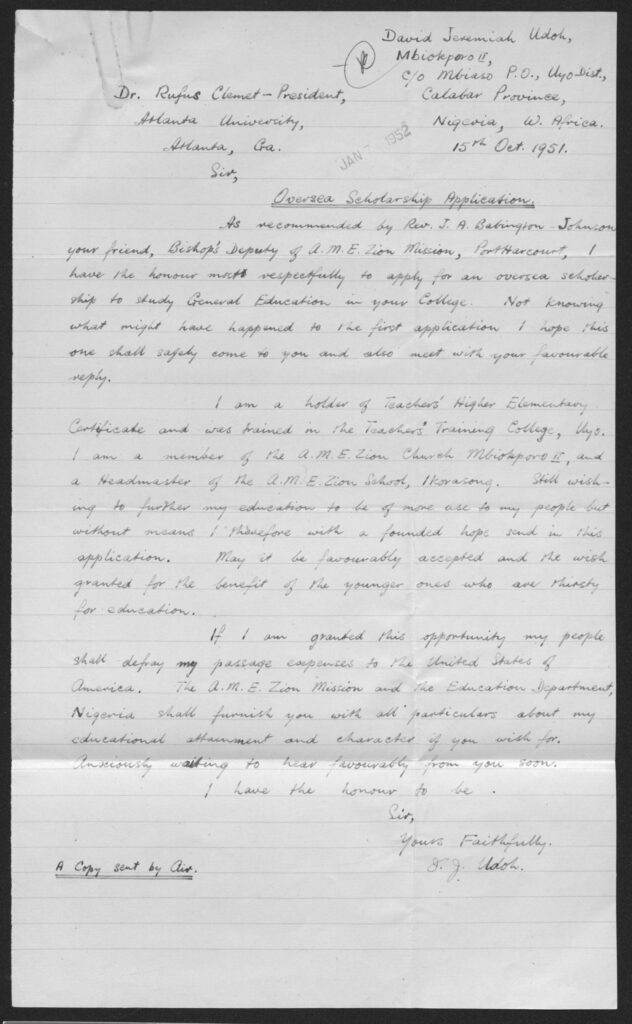 David Jeremiah Udoh,
Mbiokporo II,
c/o Mbiaso P.O., Uyo Dist.,
Calabar Province,
Nigeria, W. Africa.
15th Oct. 1951.
Dr. Rufus Clemet - President,
Atlanta University,
Atlanta, Ga.
JAN 7 1952
Sir,
Oversea Scholarship Application.
As recommended by Rev. J. A. Babington-Johnson
your friend, Bishop's Deputy of A.M.E. Zion Mission, PortHarcourt, I
have the honour most respectfully to apply for an oversea scholar-
ship to study General Education in your College. Not knowing
what might have happened to the first application I hope this
one shall safely come to you and also meet with your favourable
reply.
I am a holder of Teachers' Higher Elementary
Certificate and was trained in the Teachers' Training College, Uyo.
I am a member of the A.M.E. Zion Church Mbiokporo II, and
a Headmaster of the A.M.E. Zion School, Ikorasong. Still wish-
ing to further my education to be of more use to my people but
without means I therefore with a founded hope send in this
application. May it be favourably accepted and the wish
granted for the benefit of the younger ones who are thirsty
for education.
If I am granted this opportunity my people
shall defray my passage expenses to the United States of
America. The A.M.E. Zion Mission and the Education Department,
Nigeria shall furnish you with all particulars about my
educational attainment and character if you wish for.
Anxiously waiting to hear favourably from you soon.
I have the honour to be.
Sir,
Yours Faithfully.
D. J. Udoh.
A Copy sent by Air.